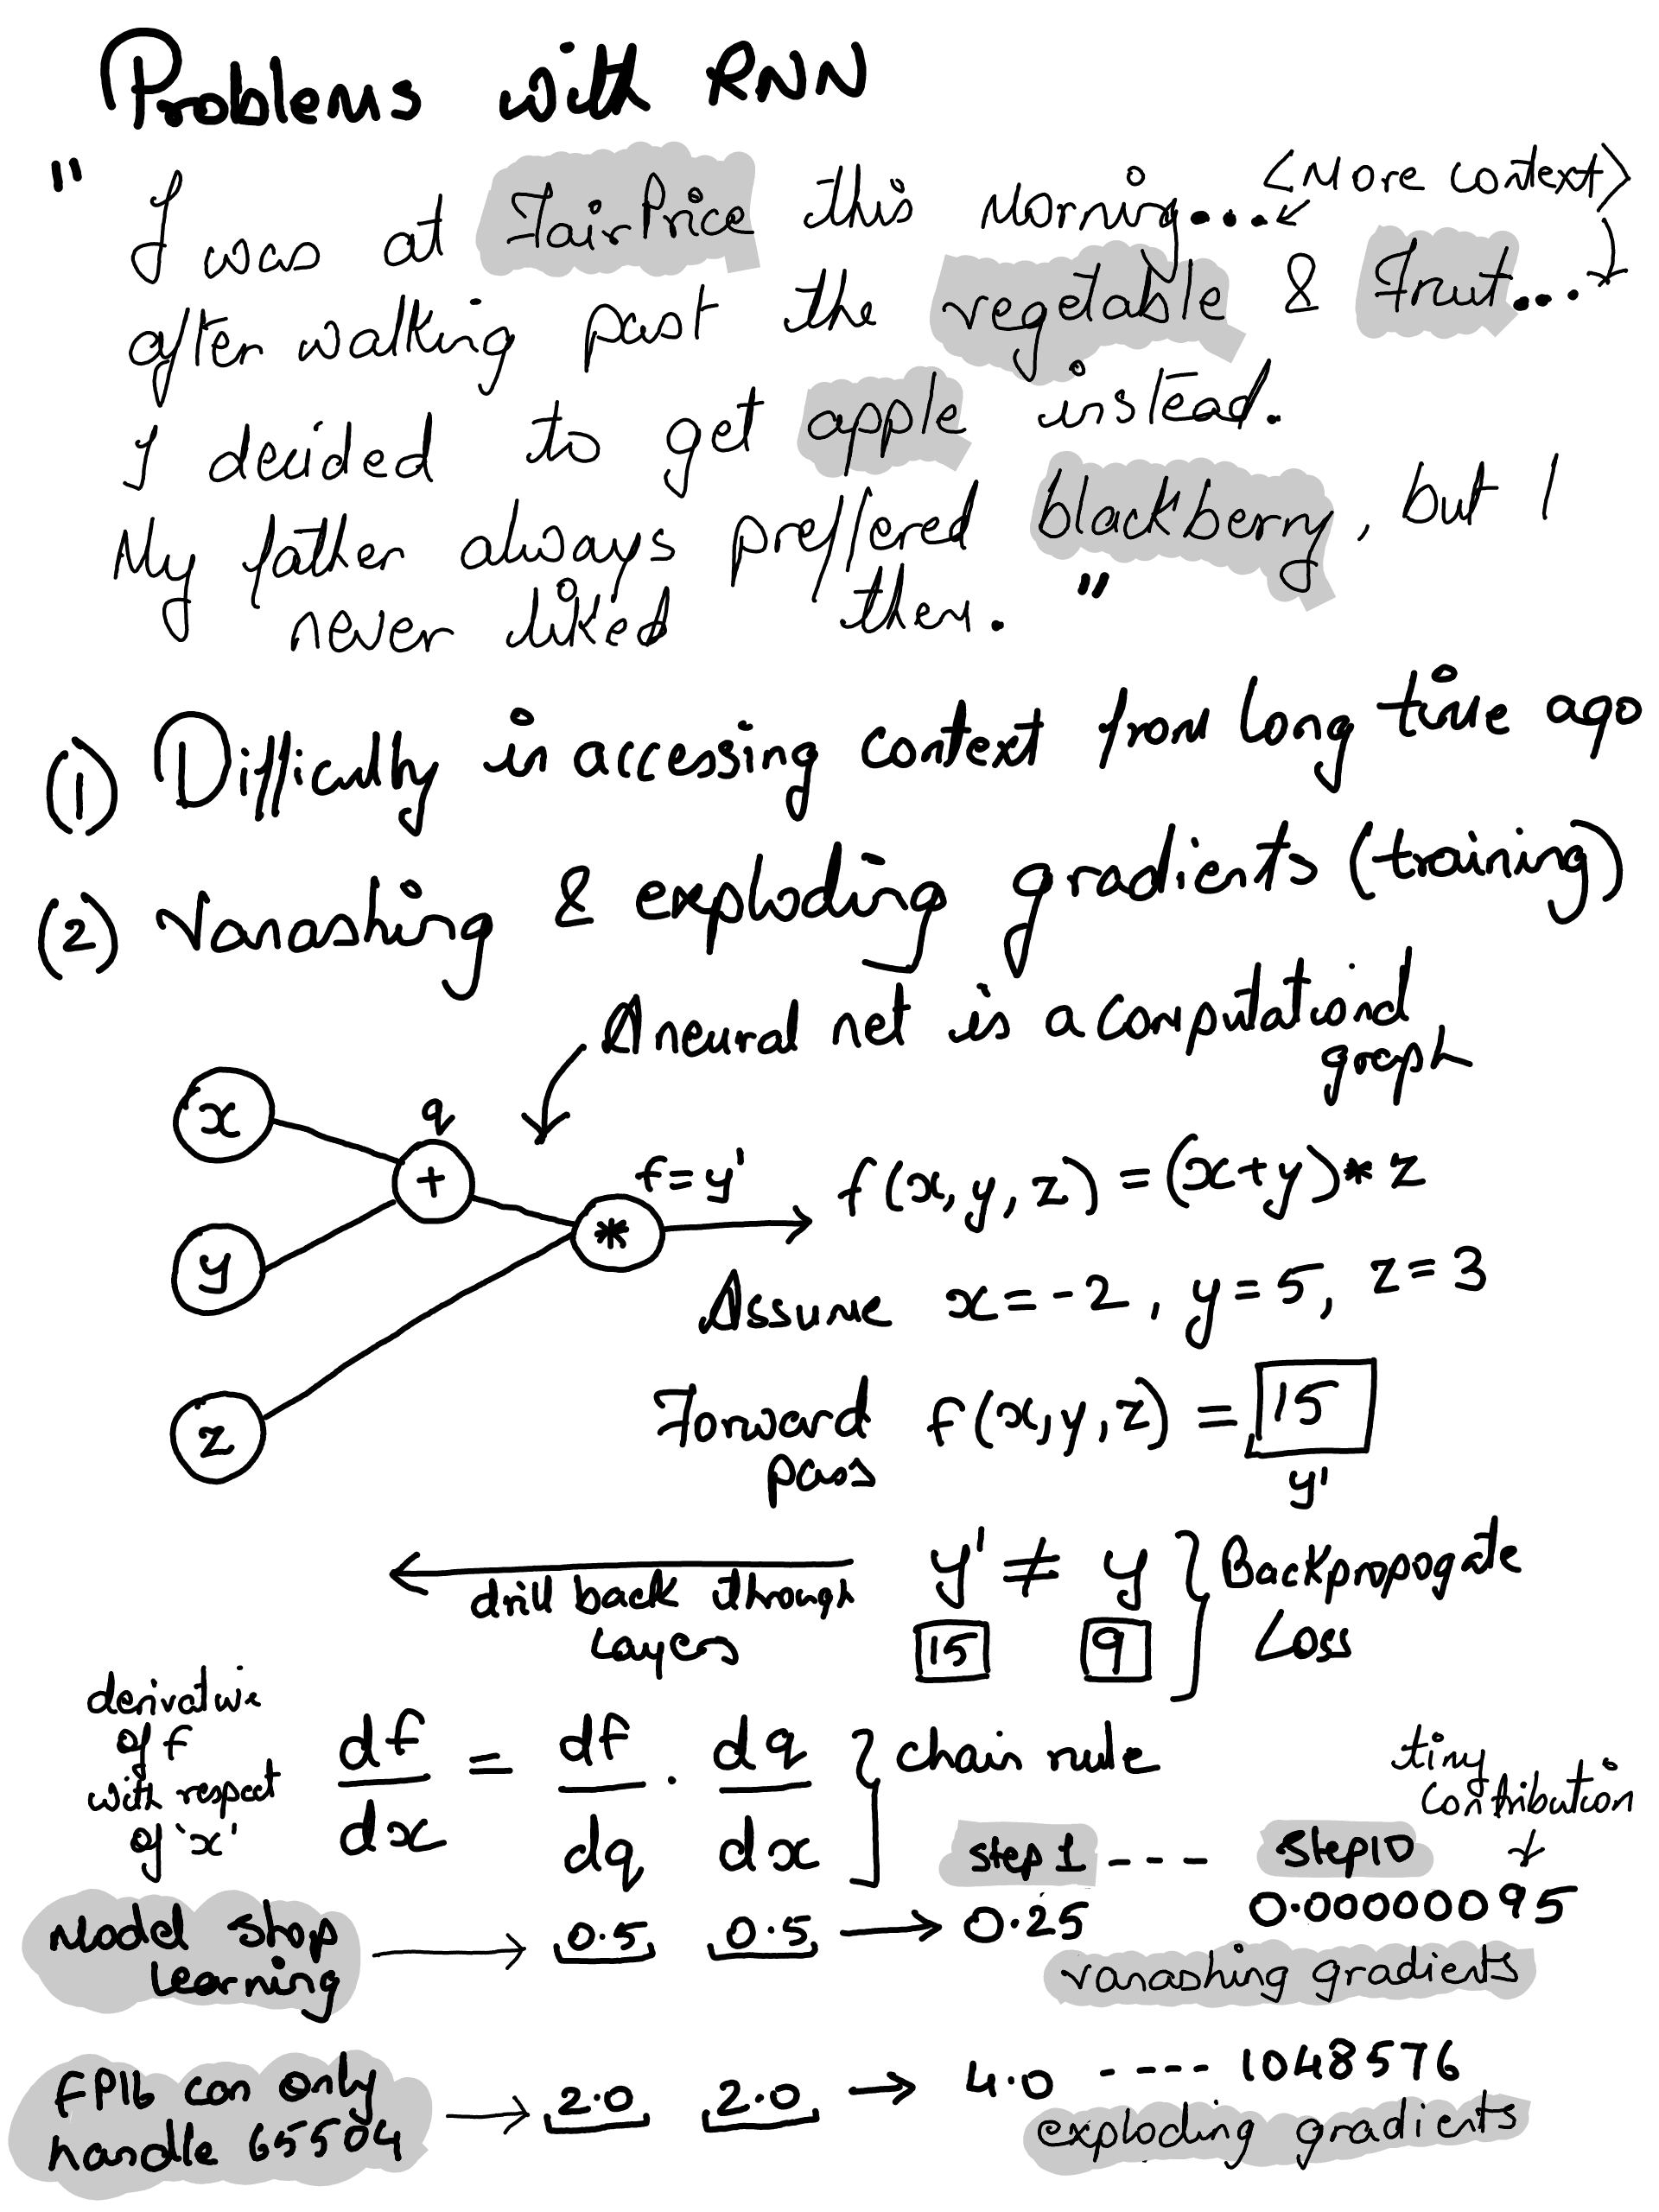 Problems with RNN
" I was at FairPrice this morning... <More context>
after walking past the vegetable & Fruit...
I decided to get apple instead.
My father always preffered blackberry, but I
never liked them. "
(1) Difficulty in accessing context from long time ago
(2) Vanashing & exploding gradients (training)
A neural net is a computational
graph
x
q
+
f=y'
f(x, y, z) = (x+y)* z
y
*
Assume x=-2, y=5, z=3
z
Forward f(x,y,z) = 15
pass
y'
y' ≠ y } Backpropogate
drill back through
layers
15 9 Loss
derivative
of f
with respect
of 'x'
df/dx = df/dq . dq/dx } chain rule
tiny
contribution
step 1 --- Step10
Model stop
learning
0.5 0.5 → 0.25 0.00000095
vanashing gradients
FP16 can only
handle 65504
2.0 2.0 → 4.0 ---- 1048576
exploding gradients